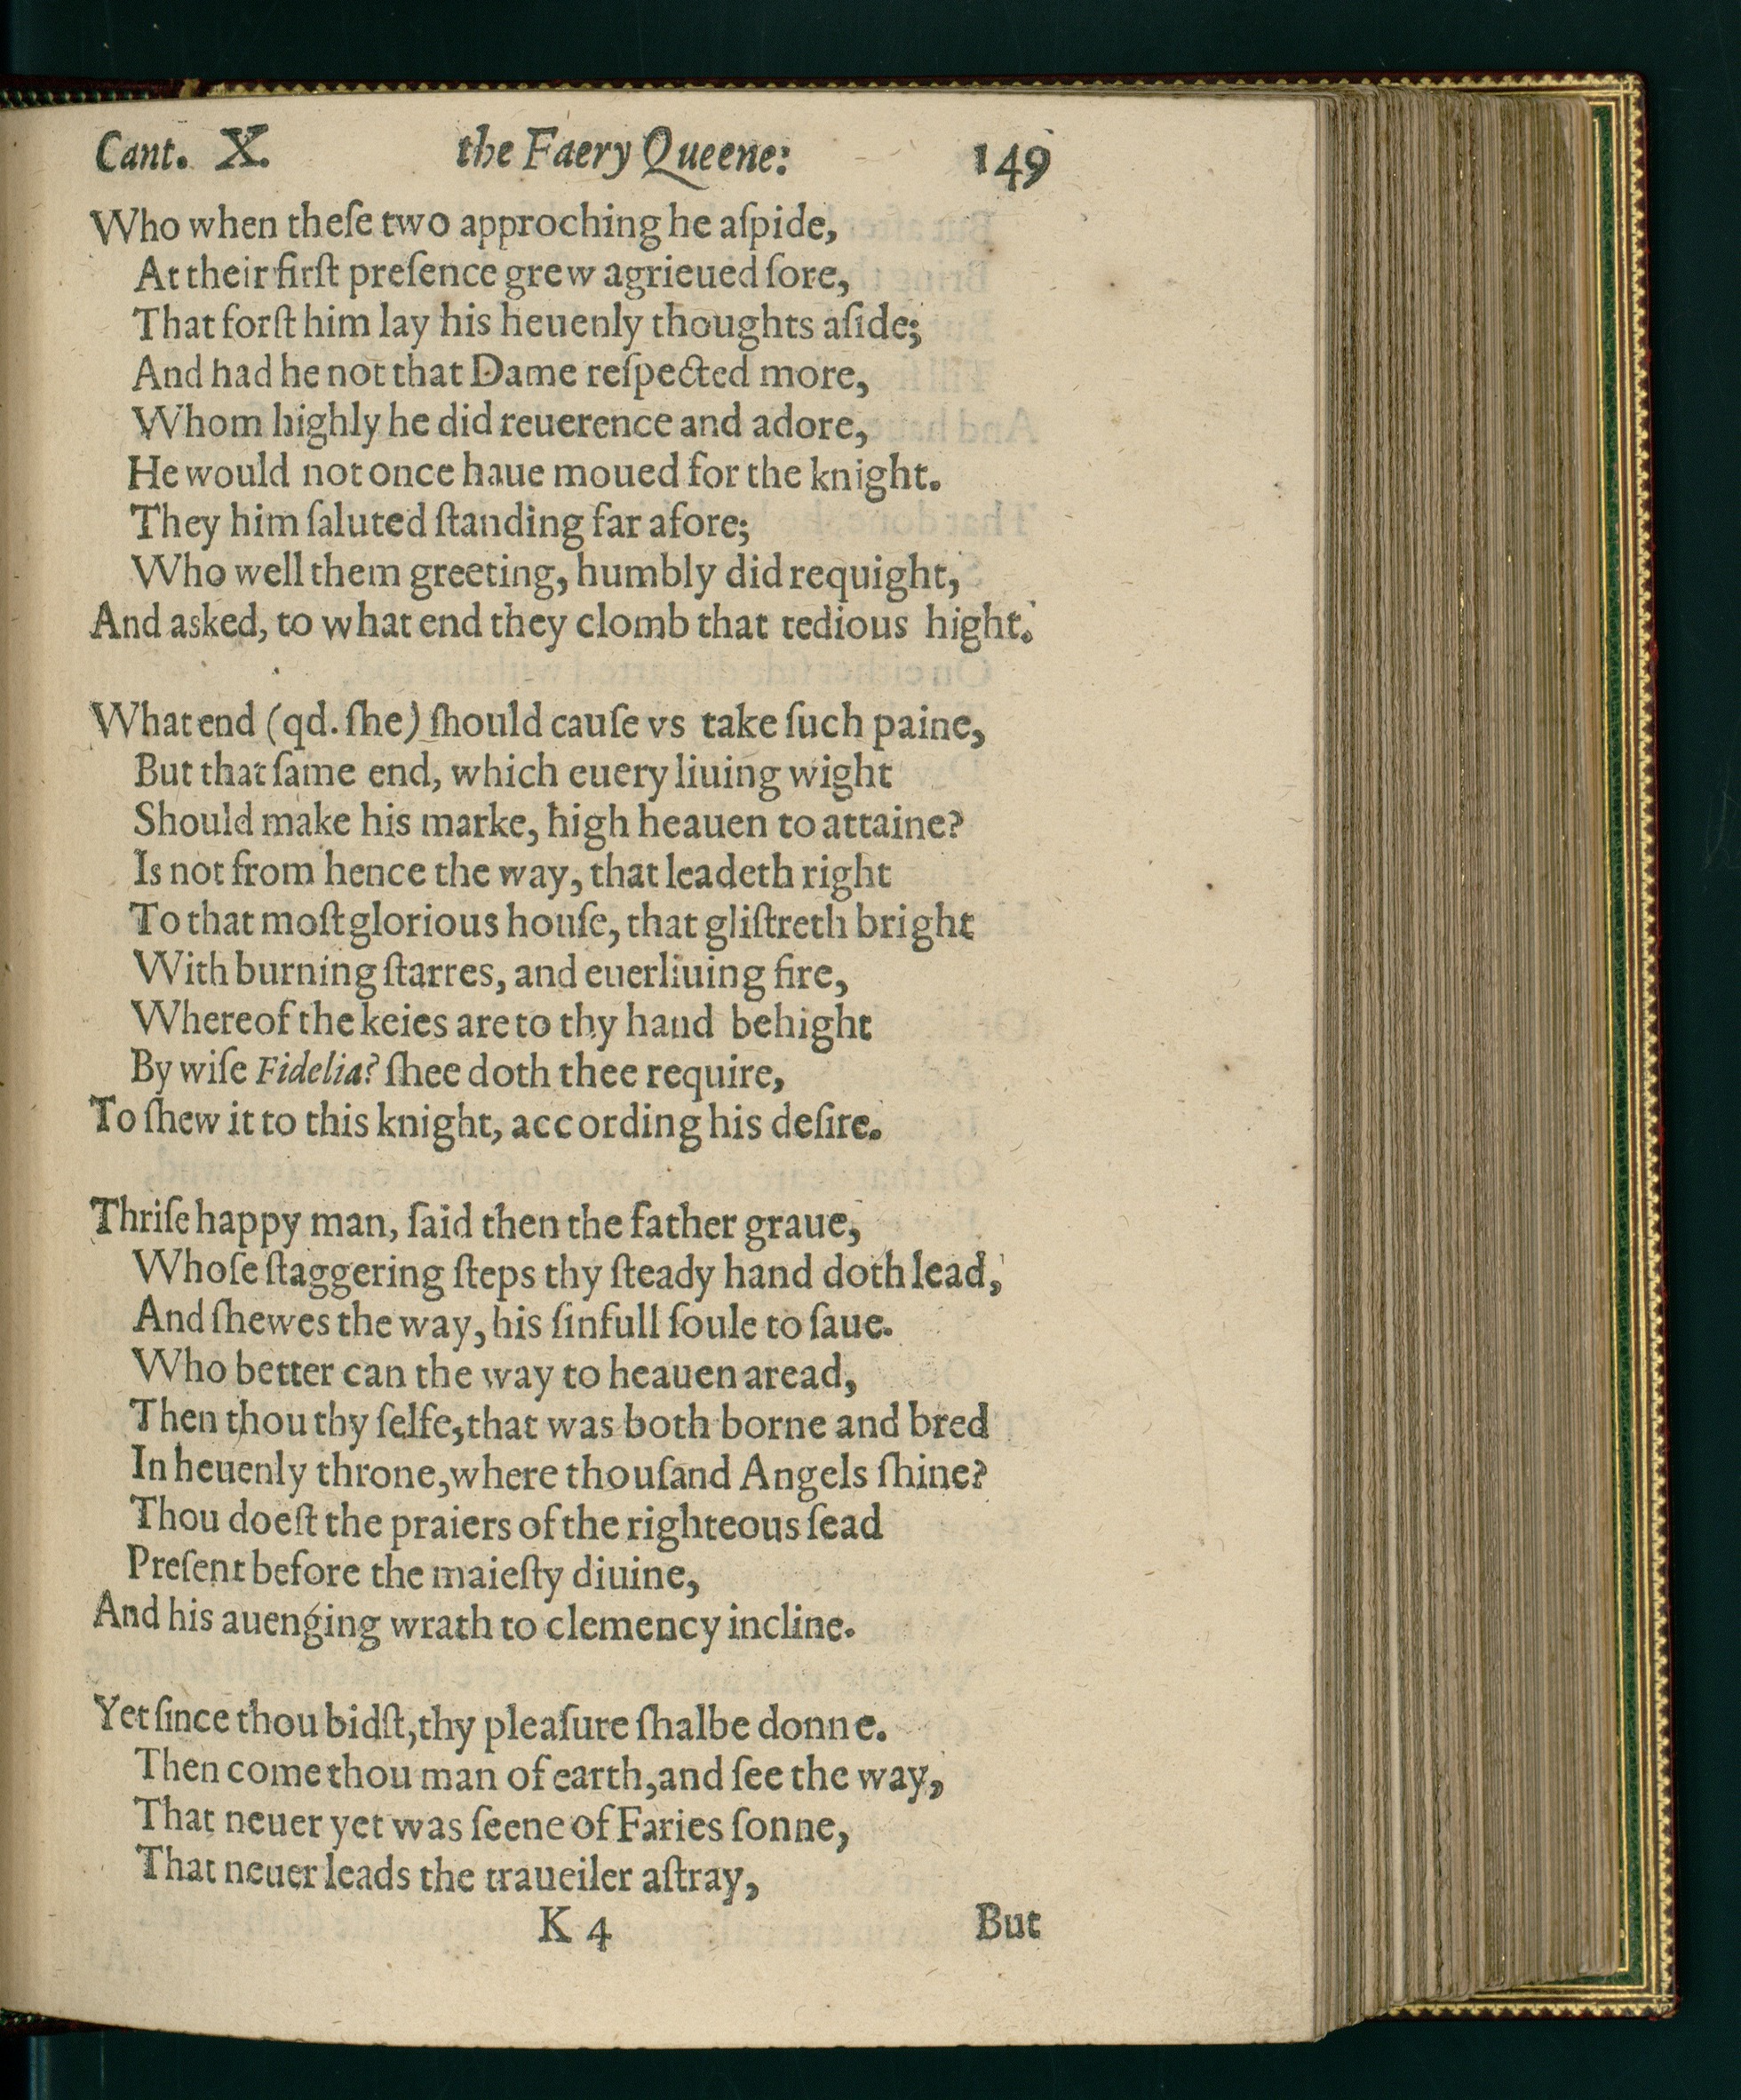 Cant. X. the Faery Queene: 149
Who when theſe two approching he aſpide,
At their firſt preſence grew agrieued ſore,
That forſt him lay his heuenly thoughts aſide;
And had he not that Dame reſpected more,
Whom highly he did reuerence and adore,
He would not once haue moued for the knight.
They him ſaluted ſtanding far afore;
Who well them greeting, humbly did requight,
And asked, to what end they clomb that tedious hight.
What end (qd. ſhe) ſhould cauſe vs take ſuch paine,
But that ſame end, which euery liuing wight
Should make his marke, high heauen to attaine?
Is not from hence the way, that leadeth right
To that moſt glorious houſe, that gliſtreth bright
With burning ſtarres, and euerliuing fire,
Whereof the keies are to thy hand behight
By wiſe Fidelia? ſhee doth thee require,
To ſhew it to this knight, according his deſire.
Thriſe happy man, ſaid then the father graue,
Whoſe ſtaggering ſteps thy ſteady hand doth lead,
And ſhewes the way, his ſinfull ſoule to ſaue.
Who better can the way to heauen aread,
Then thou thy ſelfe, that was both borne and bred
In heuenly throne, where thouſand Angels ſhine?
Thou doeſt the praiers of the righteous ſead
Preſent before the maieſty diuine,
And his auenging wrath to clemency incline.
Yet ſince thou bidſt, thy pleaſure ſhalbe donne.
Then come thou man of earth, and ſee the way,
That neuer yet was ſeene of Faries ſonne,
That neuer leads the traueiler aſtray,
K 4 But